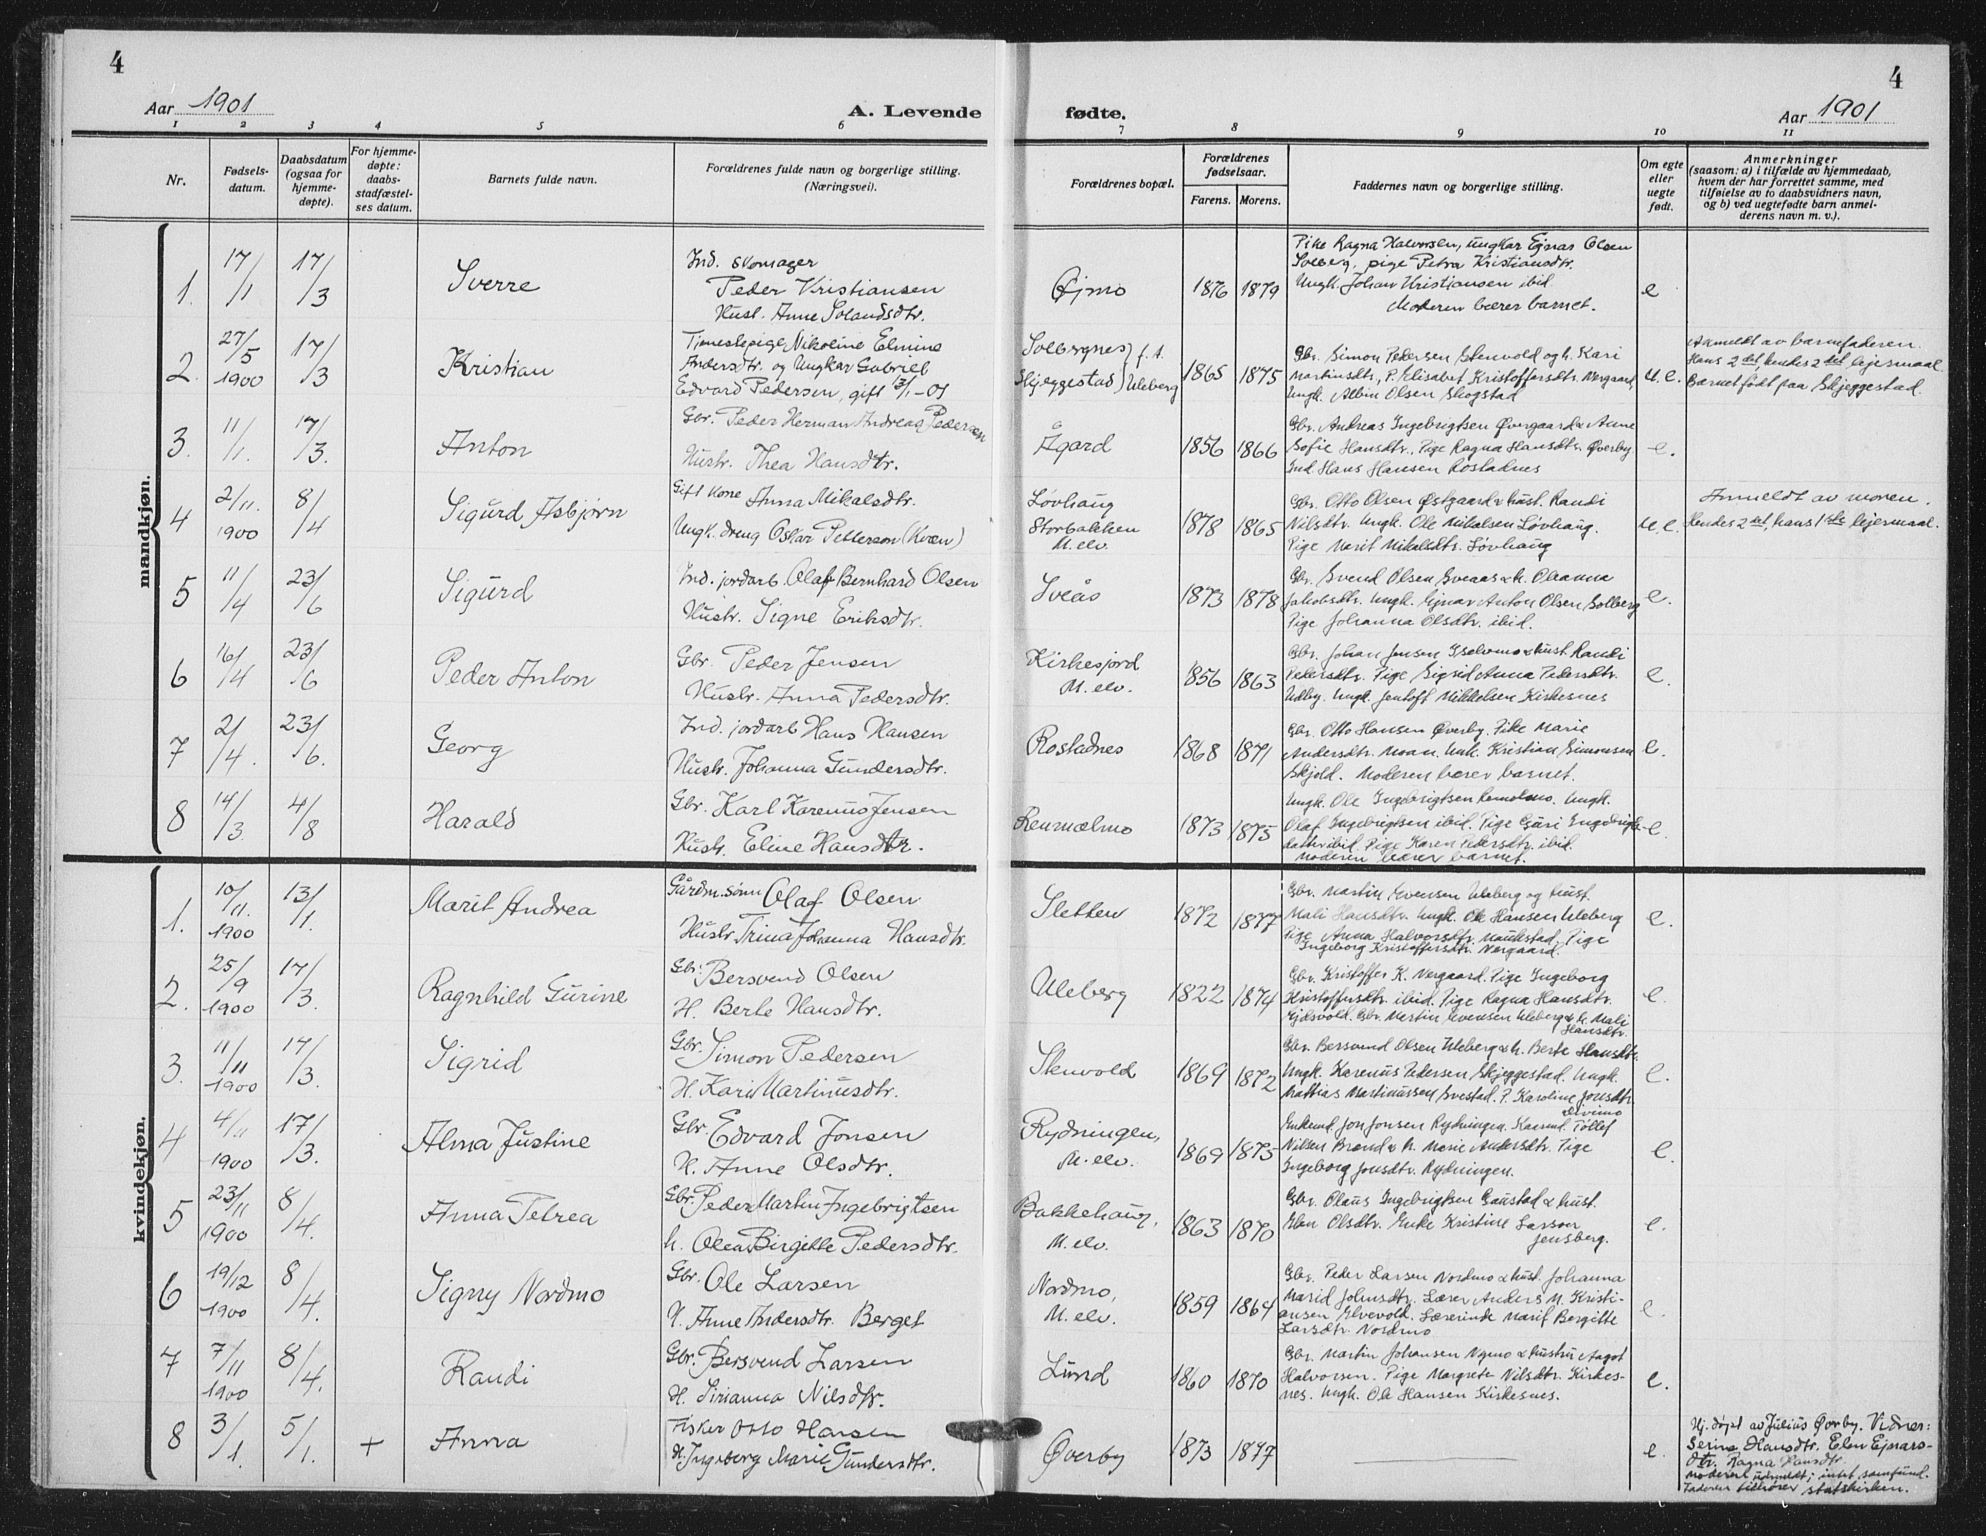 4
Aar 1901
A. Levende
1 2 3 4 5 6
Nr.
Fødsels-
datum.
Daabsdatum
(ogsaa for
hjemme-
døpte).
For hjemme-
døpte:
daabs-
stadfæstel-
ses datum.
Barnets fulde navn.
Forældrenes fulde navn og borgerlige stilling.
(Næringsvei).
4
fødte.
Aar 1901
7 8 9 10 11
Forældrenes bopæl.
Forældrenes
fødselsaar.
Farens. Morens.
Faddernes navn og borgerlige stilling.
Om egte
eller
uegte
født.
Anmerkninger
(saasom: a) i tilfælde av hjemmedaab,
hvem der har forrettet samme, med
tilføielse av to daabsvidners navn,
og b) ved uegtefødte barn anmel-
derens navn m. v.).
mandkjøn.
1. 17/1 17/3 Sverre
Ind. skomager
Peder Kristiansen
Hust. Anne Solandsdtr.
Øjmo 1876 1879
Pike Ragna Halvorsen, ungkar Ejnar Olsen
Solberg, pige Petra Kristiansdtr.
Ungk. Johan Kristiansen ibid
Moderen bærer barnet.
e
2. 27/5 1900 17/3 Kristian
Tjenestepige Nikoline Elmine
Andersdtr. og Ungkar Gabriel
Edvard Pedersen, gift 13/1-01
Solbergnes } f. t.
Skjeggestad } Uleberg
1865 1875
Gbr. Simon Pedersen Stenvold og h. Kari
Martinsdtr., P. Elisabet Kristoffersdtr. Vergaard
Ungk. Albin Olsen Skogstad
u.e.
Anmeldt av barnefaderen.
Hans 2det, hendes 2det lejermaal.
Barnet født paa Skjeggestad.
3. 11/1. 17/3. Anton
Gbr. Peder Herman Andreas Pedersen
Hustr. Thea Hansdtr.
Ågard 1856 1866
Gbr. Andreas Ingebrigtsen Øvergaard & Anne
Sofie Hansdtr. Pige Ragna Hansdtr. Øverby
Ind. Hans Hansen Rostadnes
e.
4 2/11. 1900 8/4 Sigurd Asbjørn
Gift kone Anna Mikalsdtr.
Ungk. dreng Oskar Petterson (Kvæn)
Løvhaug
Storbakken
M. elv.
1878 1865
Gbr. Otto Olsen Østgaard & hust. Randi
Nilsdtr. Ungk. Ole Mikalsen Løvhaug.
Pige Marit Mikalsdtr. Løvhaug
u.e.
Anmeldt av moren.
Hendes 2det, hans 1ste lejermaal.
5 11/4 23/6 Sigurd
Ind. jordarb. Olaf Bernhard Olsen
Hustr. Signe Eriksdtr.
Sveås 1873 1878
Gbr. Svend Olsen Sveaas & h. Oleanna
Jakobsdtr. Ungk. Ejnar Anton Olsen Solberg
Pige Johanna Olsdtr. ibid.
e.
6 16/4 23/6 Peder Anton
Gbr. Peder Jensen
Hustr. Anna Pedersdtr.
Kirkesjord
M. elv.
1856 1863
Gbr. Johan Jensen & hust. Randi
Pedersdtr. Pige Sigrid Anna Pedersdtr.
Udby. Ungk. Jentoft Mikkelsen Kirkesnes
e.
7 2/4. 23/6. Georg
Ind. jordarb Hans Hansen
Hustr. Johanna Gundersdtr.
Rostadnes 1868 1871
Gbr. Otto Hansen Øverby. Pike Marie
Andersdtr. Moan. Ungk. Kristian Simonsen
Skjold. Moderen bærer barnet.
e.
8 14/3 4/8 Harald
Gbr. Karl Karenius Jensen
Hustr. Eline Hansdtr.
Renmælmo 1873 1875
Ungk. Ole Ingebrigtsen Renmælmo. Ungk.
Olaf Ingebrigtsen ibid. Pige Guri Ingebrigts-
datter ibid. Pige Karen Pedersdtr. ibid.
Moderen bærer barnet.
e.
kvindekjøn.
1. 10/11. 1900 13/1. Marit Andrea
Gårdm. sønn Olaf Olsen
Hustr. Trina Johanna Hansdtr.
Sletten 1872 1877
Gbr. Martin Evensen Uleberg og hust.
Mali Hansdtr. Ungk. Ole Hansen Uleberg
Pige Anna Halvorsdtr. Maukstad, Pige
Ingeborg Kristoffersdtr. Vergaard.
e.
2. 25/9 1900 17/3. Ragnhild Gurine
Gbr. Bersvend Olsen
H. Berte Hansdtr.
Uleberg 1822 1874
Gbr. Kristoffer K. Vergaard. Pige Ingeborg
Kristoffersdtr. ibid. Pige Ragna Hansdtr.
Ejdsvold. Gbr. Martin Evensen Uleberg & h. Mali
Hansdtr.
e.
3. 11/11 1900 17/3. Sigrid
Gbr. Simon Pedersen
H. Kari Martinusdtr.
Stenvold 1869 1872
Gbr. Bersvend Olsen Uleberg & h. Berte Hansdtr.
Ungk. Karenus Pedersen Skjeggestad. Ungk.
Mathias Martinussen Svestad. P. Karoline Jonsdtr.
Divimo
e.
4 4/11 1900 17/3. Alma Justine
Gbr. Edvard Jonsen
H. Anne Olsdtr.
Rydningen,
M. elv.
1869 1875
Enkemd. Jon Jonsen Rydningen. Tollef
Nilsen Brand & h. Marie Andersdtr. Pige
Ingeborg Jonsdtr. Rydningen.
e.
5 23/11 1900 8/4. Anna Petrea
Gbr. Peder Martin Ingebrigtsen
h. Olea Birgitte Pedersdtr.
Bakkehaug,
M. elv.
1863 1870
Gbr. Olaus Ingebrigtsen Gaustad & hust.
Elen Olsdtr. Enke Kristine Larsen
Jensberg.
e.
6 19/12 1900 8/4. Signy Nordmo
Gbr. Ole Larsen
H. Anne Andersdtr. Berget
Nordmo,
M. elv.
1859 1864
Gbr. Peder Larsen Nordmo & hust. Johanna
Marid Johnsdtr. Lærer Anders M. Kristi-
ansen Elvevold. Lærerinde Marit Bergitte
Larsdtr. Nordmo
e.
7 7/11 1900 8/4. Randi
Gbr. Bersvend Larsen
H. Sirianna Nilsdtr.
Lund 1860 1870
Gbr. Martin Johansen Nymo & hustru Aagot
Halvorsen. Pige Margrete Nilsdtr. Kirkes-
nes. Ungk. Ole Hansen Kirkesnes.
e.
8 3/1. 5/1. + Anna
Fisker Otto Hansen
H. Ingeborg Marie Gundersdtr.
Øverby 1873 1877
e.
Hj. døpt av Julius Øvrby. Vidner:
Serine Hansdtr. Elen Ejnars-
dtr. Ragna Hansdtr.
Moderen udmeldt; intet samfund.
Faderen tilhører statskirken.